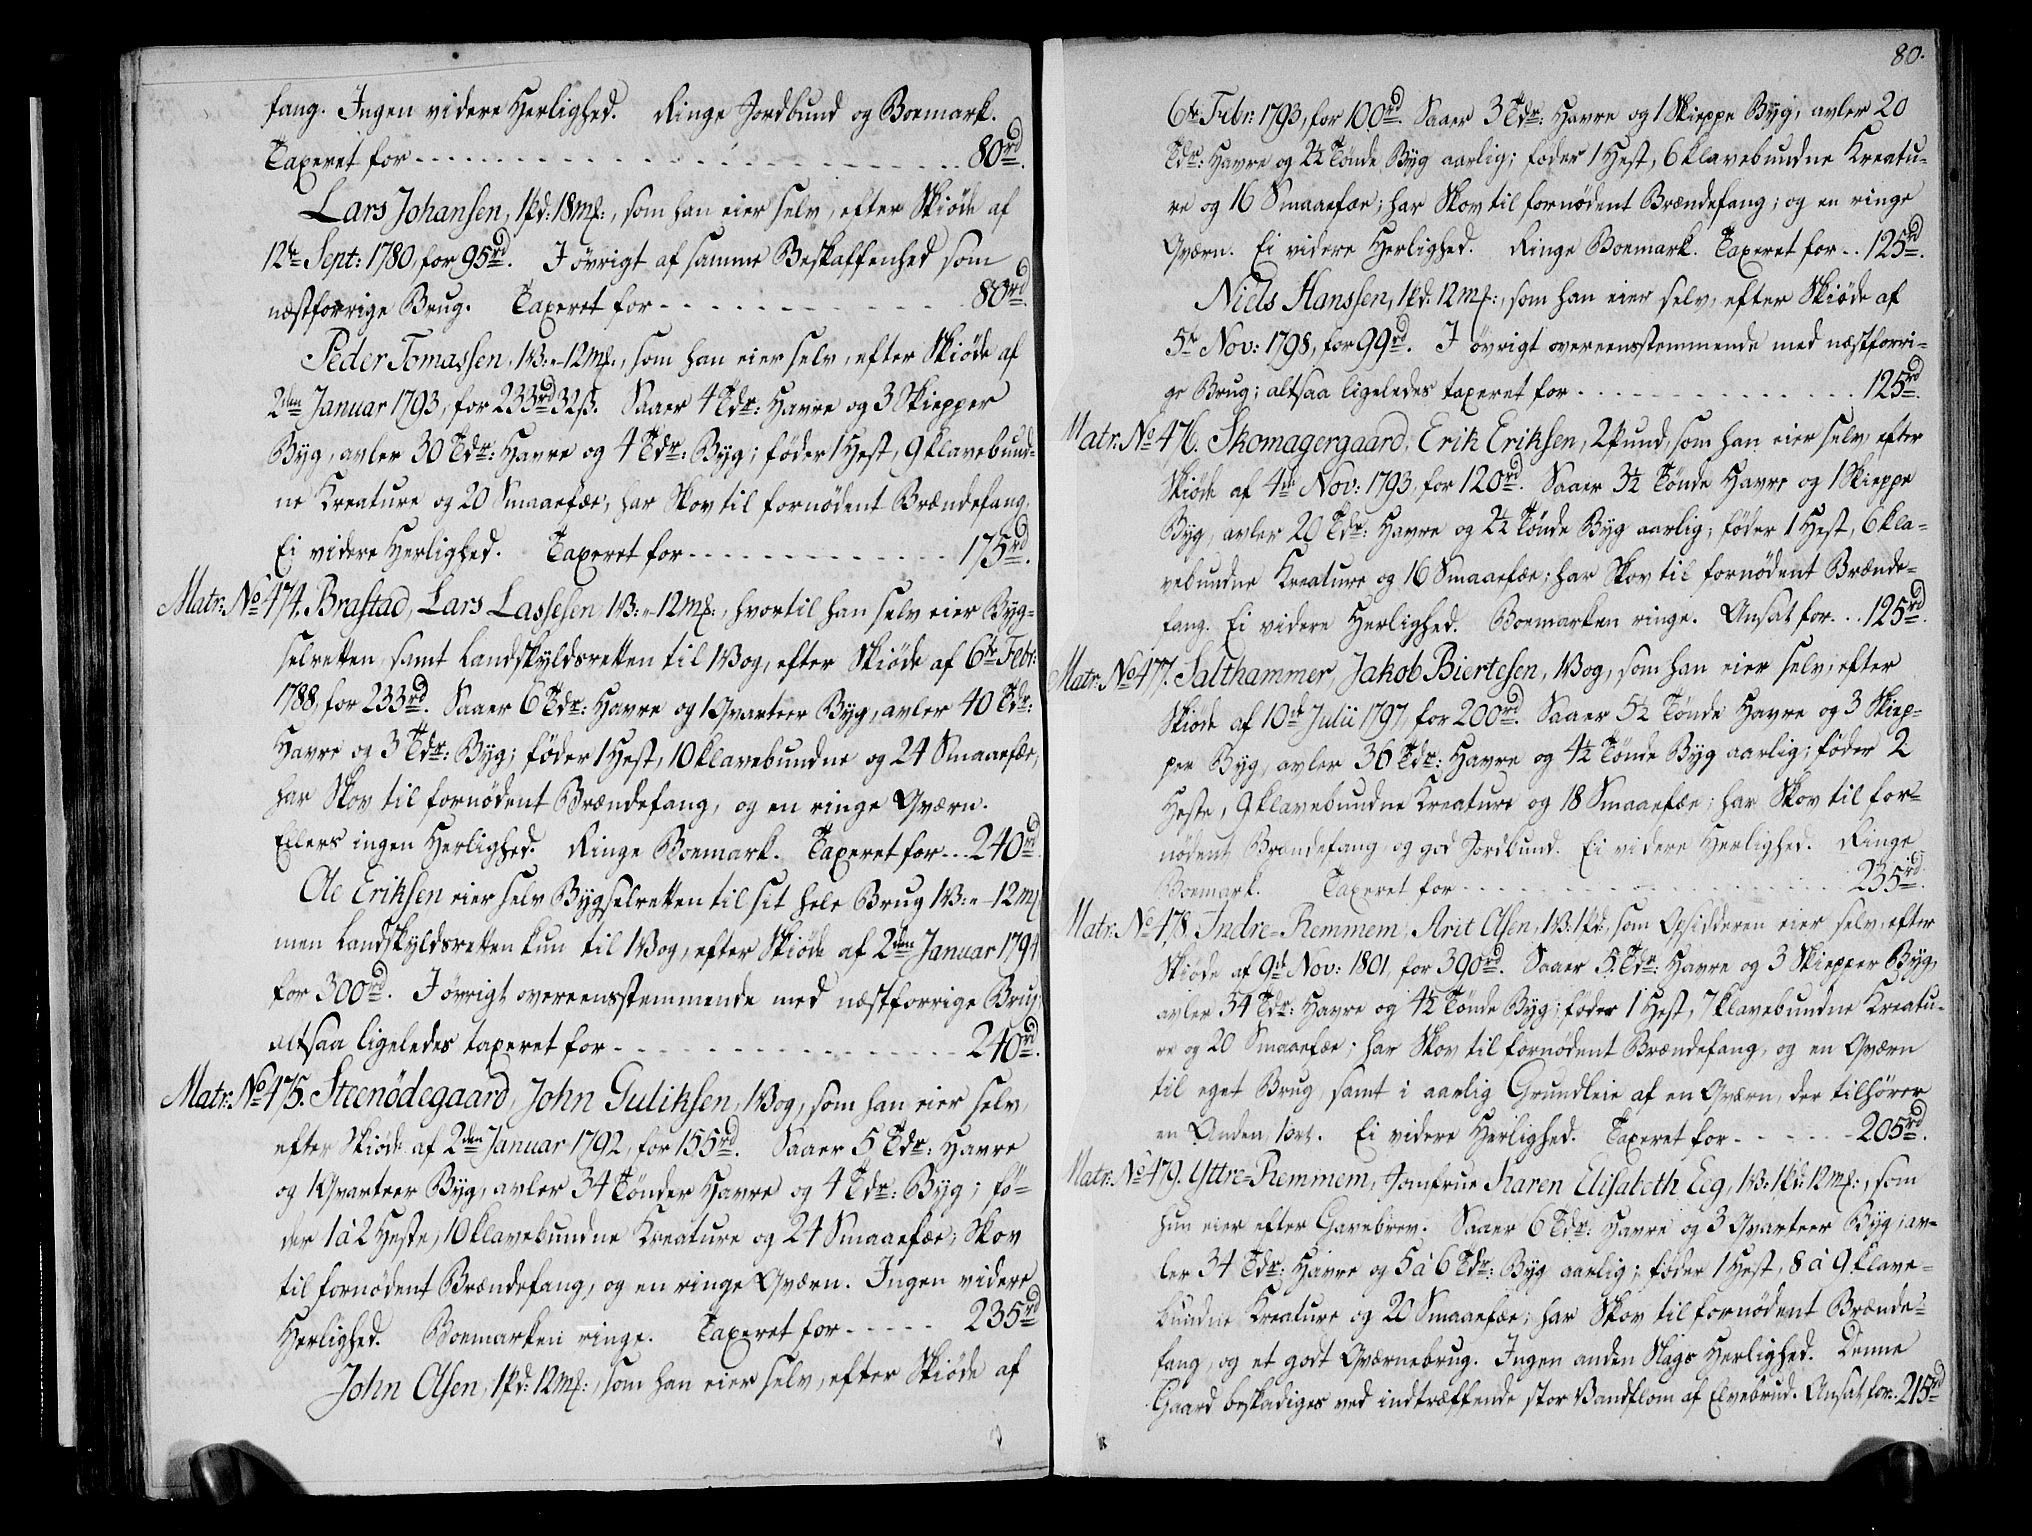 fang. Ingen videre Herlighed. Ringe Jordbund og Boemark.
Taxeret for - - - 80rd.
Lars Johansen, 1pd: 18mf:, som han eier selv, efter Skiøde af
12te Sept: 1780, for 95rd. I øvrigt af samme Beskaffenhed som
næstforrige Brug. Taxeret for - - - 80rd.
Peder Tomassen, 1V: „ - 12mf:, som han eier selv, efter Skiøde af
2den Januar 1793, for 233rd 32ß. Saaer 4 Tdr: Havre og 3 Skiepper
Byg, avler 30 Tdr: Havre og 4 Tdr: Byg; føder 1 Hest, 9 klavebund-
ne Kreature og 20 Smaaefæ; har Skov til fornødent Brændefang.
Ei videre Herlighed. Taxeret for - - - 175rd.
Matr: No 474. Brastad, Lars Lassesen 1V: „ - 12mf:, hvortil han selv eier Byg-
selretten, samt Landskyldsretten til 1 Vog, efter Skiøde af 6te Febr:
1788, for 233rd. Saaer 6 Tdr: Havre og 1 Qvarteer Byg, avler 40 Tdr:
Havre og 3 Tdr: Byg; føder 1 Hest, 10 klavebundne og 24 Smaaefæe;
har Skov til fornødent Brændefang, og en ringe Qværn.
Ellers ingen Herlighed. Ringe Boemark. Taxeret for - - - 240rd.
Ole Eriksen eier selv Bygselretten til sit hele Brug 1V: „ - 12mf
men Landskyldsretten kun til 1 Vog, efter Skiøde af 2den Januar 1794
for 300rd. I øvrigt overeensstemmende med næstforrige Brug,
altsaa ligeledes taxeret for - - - 240rd.
Matr: No 475. Steenødegaard, John Guliksen, 1 Vog, som han eier selv,
efter Skiøde af 2den Januar 1792, for 155rd. Saaer 5 Tdr: Havre
og 1 Qvarteer Byg, avler 34 Tønder Havre og 4 Tdr: Byg; fø-
der 1 à 2 Heste, 10 klavebundne Kreature og 24 Smaaefæe; Skov
til fornødent Brændefang, og en ringe Qværn. Ingen videre
Herlighed. Boemarken ringe. Taxeret for - - - 235rd
John Olsen, 1pd: 12mf:, som han eier selv, efter Skiøde af
80.
6te Febr: 1793, for 100rd. Saaer 3 Tdr: Havre og 1 Skieppe Byg, avler 20
Tdr: Havre og 2½ Tønde Byg aarlig; føder 1 Hest, 6 klavebundne Kreatu-
re og 16 Smaaefæe; har Skov til fornødent Brændefang; og en ringe
Qværn. Ei videre Herlighed. Ringe Boemark. Taxeret for - - 125rd.
Niels Hanssen, 1pd: 12mf:, som han eier selv, efter Skiøde af
5te Nov: 1798, for 99rd. I øvrigt overeensstemmende med næstforri-
ge Brug; altsaa ligeledes taxeret for - - - 125rd.
Matr: No 476. Skomagergaard, Erik Eriksen, 2 Pund, som han eier selv, efter
Skiøde af 4de Nov: 1793, for 120rd. Saaer 3½ Tønde Havre og 1 Skieppe
Byg, avler 20 Tdr: Havre og 2½ Tønde Byg aarlig; føder 1 Hest, 6 kla-
vebundne Kreature og 16 Smaaefæe; har Skov til fornødent Brænde-
fang. Ei videre Herlighed. Boemarken ringe. Ansat for - - 125rd.
Matr: No 477. Salthammer, Jakob Biertesen, 1 Vog, som han eier selv, efter
Skiøde af 10de Julii 1797, for 200rd. Saaer 5½ Tønde Havre og 3 Skiep-
per Byg, avler 36 Tdr: Havre og 4½ Tønde Byg aarlig; føder 2
Heste, 9 klavebundne Kreature og 18 Smaaefæe; har Skov til for-
nødent Brændefang og god Jordbund. Ei videre Herlighed. Ringe
Boemark. Taxeret for - - - 235rd.
Matr: No 478. Indre-Remmem, Arit Olsen, 1V: 1pd, som Opsidderen eier selv, efter
Skiøde af 9de Nov: 1801, for 390rd. Saaer 5 Tdr: Havre og 3 Skiepper Byg,
avler 34 Tdr: Havre og 4½ Tønde Byg; føder 1 Hest, 7 klavebundne Kreatu-
re og 20 Smaaefæe; har Skov til fornødent Brændefang, og en Qværn
til eget Brug, samt i aarlig Grundleie af en Qværn, der tilhører
en Anden, 1 ort. Ei videre Herlighed. Taxeret for - - - 205rd.
Matr: No 479. Yttre-Remmem, Jomfrue Karen Elisabeth Eeg, 1V: 1pd: 12mf:, som
hun eier efter Gavebrev. Saaer 6 Tdr: Havre og 3 Qvarteer Byg, av-
ler 34 Tdr: Havre og 5 à 6 Tdr: Byg aarlig; føder 1 Hest, 8 à 9 klave-
bundne Kreature og 20 Smaaefæe; har Skov til fornødent Brænde-
fang, og et godt Qværnebrug. Ingen anden Slags Herlighed. Denne
Gaard beskadiges ved indtræffende stor Vandflom af Elvebrud. Ansat for - 215rd